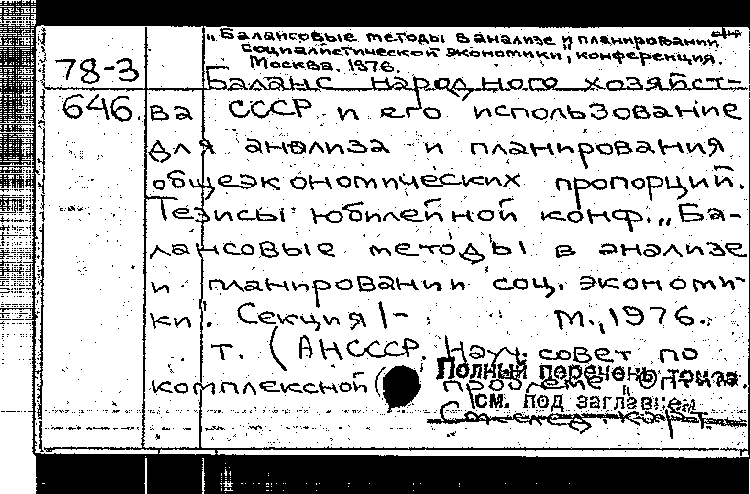 „Балансовые методы в анализе и планировании
социалистической экономики", конференция.
Москва. 1976.
78-3
646.
Баланс народного хозяйст-
ва СССР и его использование
для анализа и планирования
общеэкономических пропорций.
Тезисы юбилейной конф. „Ба-
лансовые методы в анализе
и планировании соц. экономи-
ки". Секция 1-
М., 1976.
т. (АН СССР. Науч. совет по
комплексной проблеме „Оптим.
Полный перечень томов
см. под заглавием